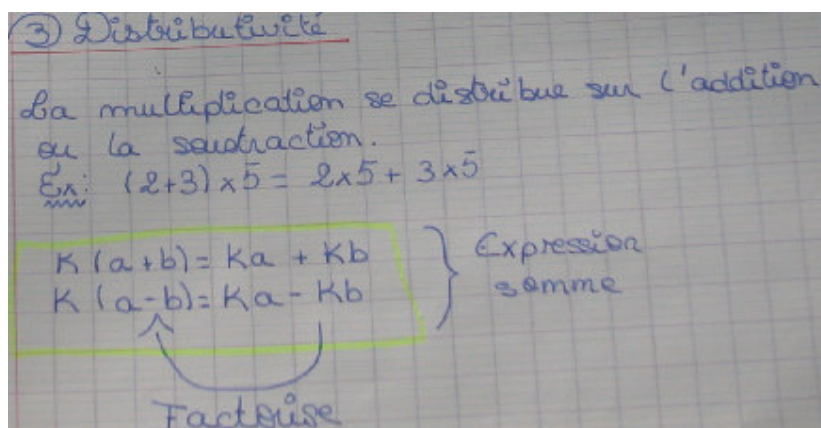 ③ Distributivité
La multiplication se distribue sur l'addition
ou la soustraction.
Ex: (2+3)×5 = 2×5 + 3×5
K(a+b) = Ka + Kb
K(a-b) = Ka - Kb
Expression
somme
Factorise